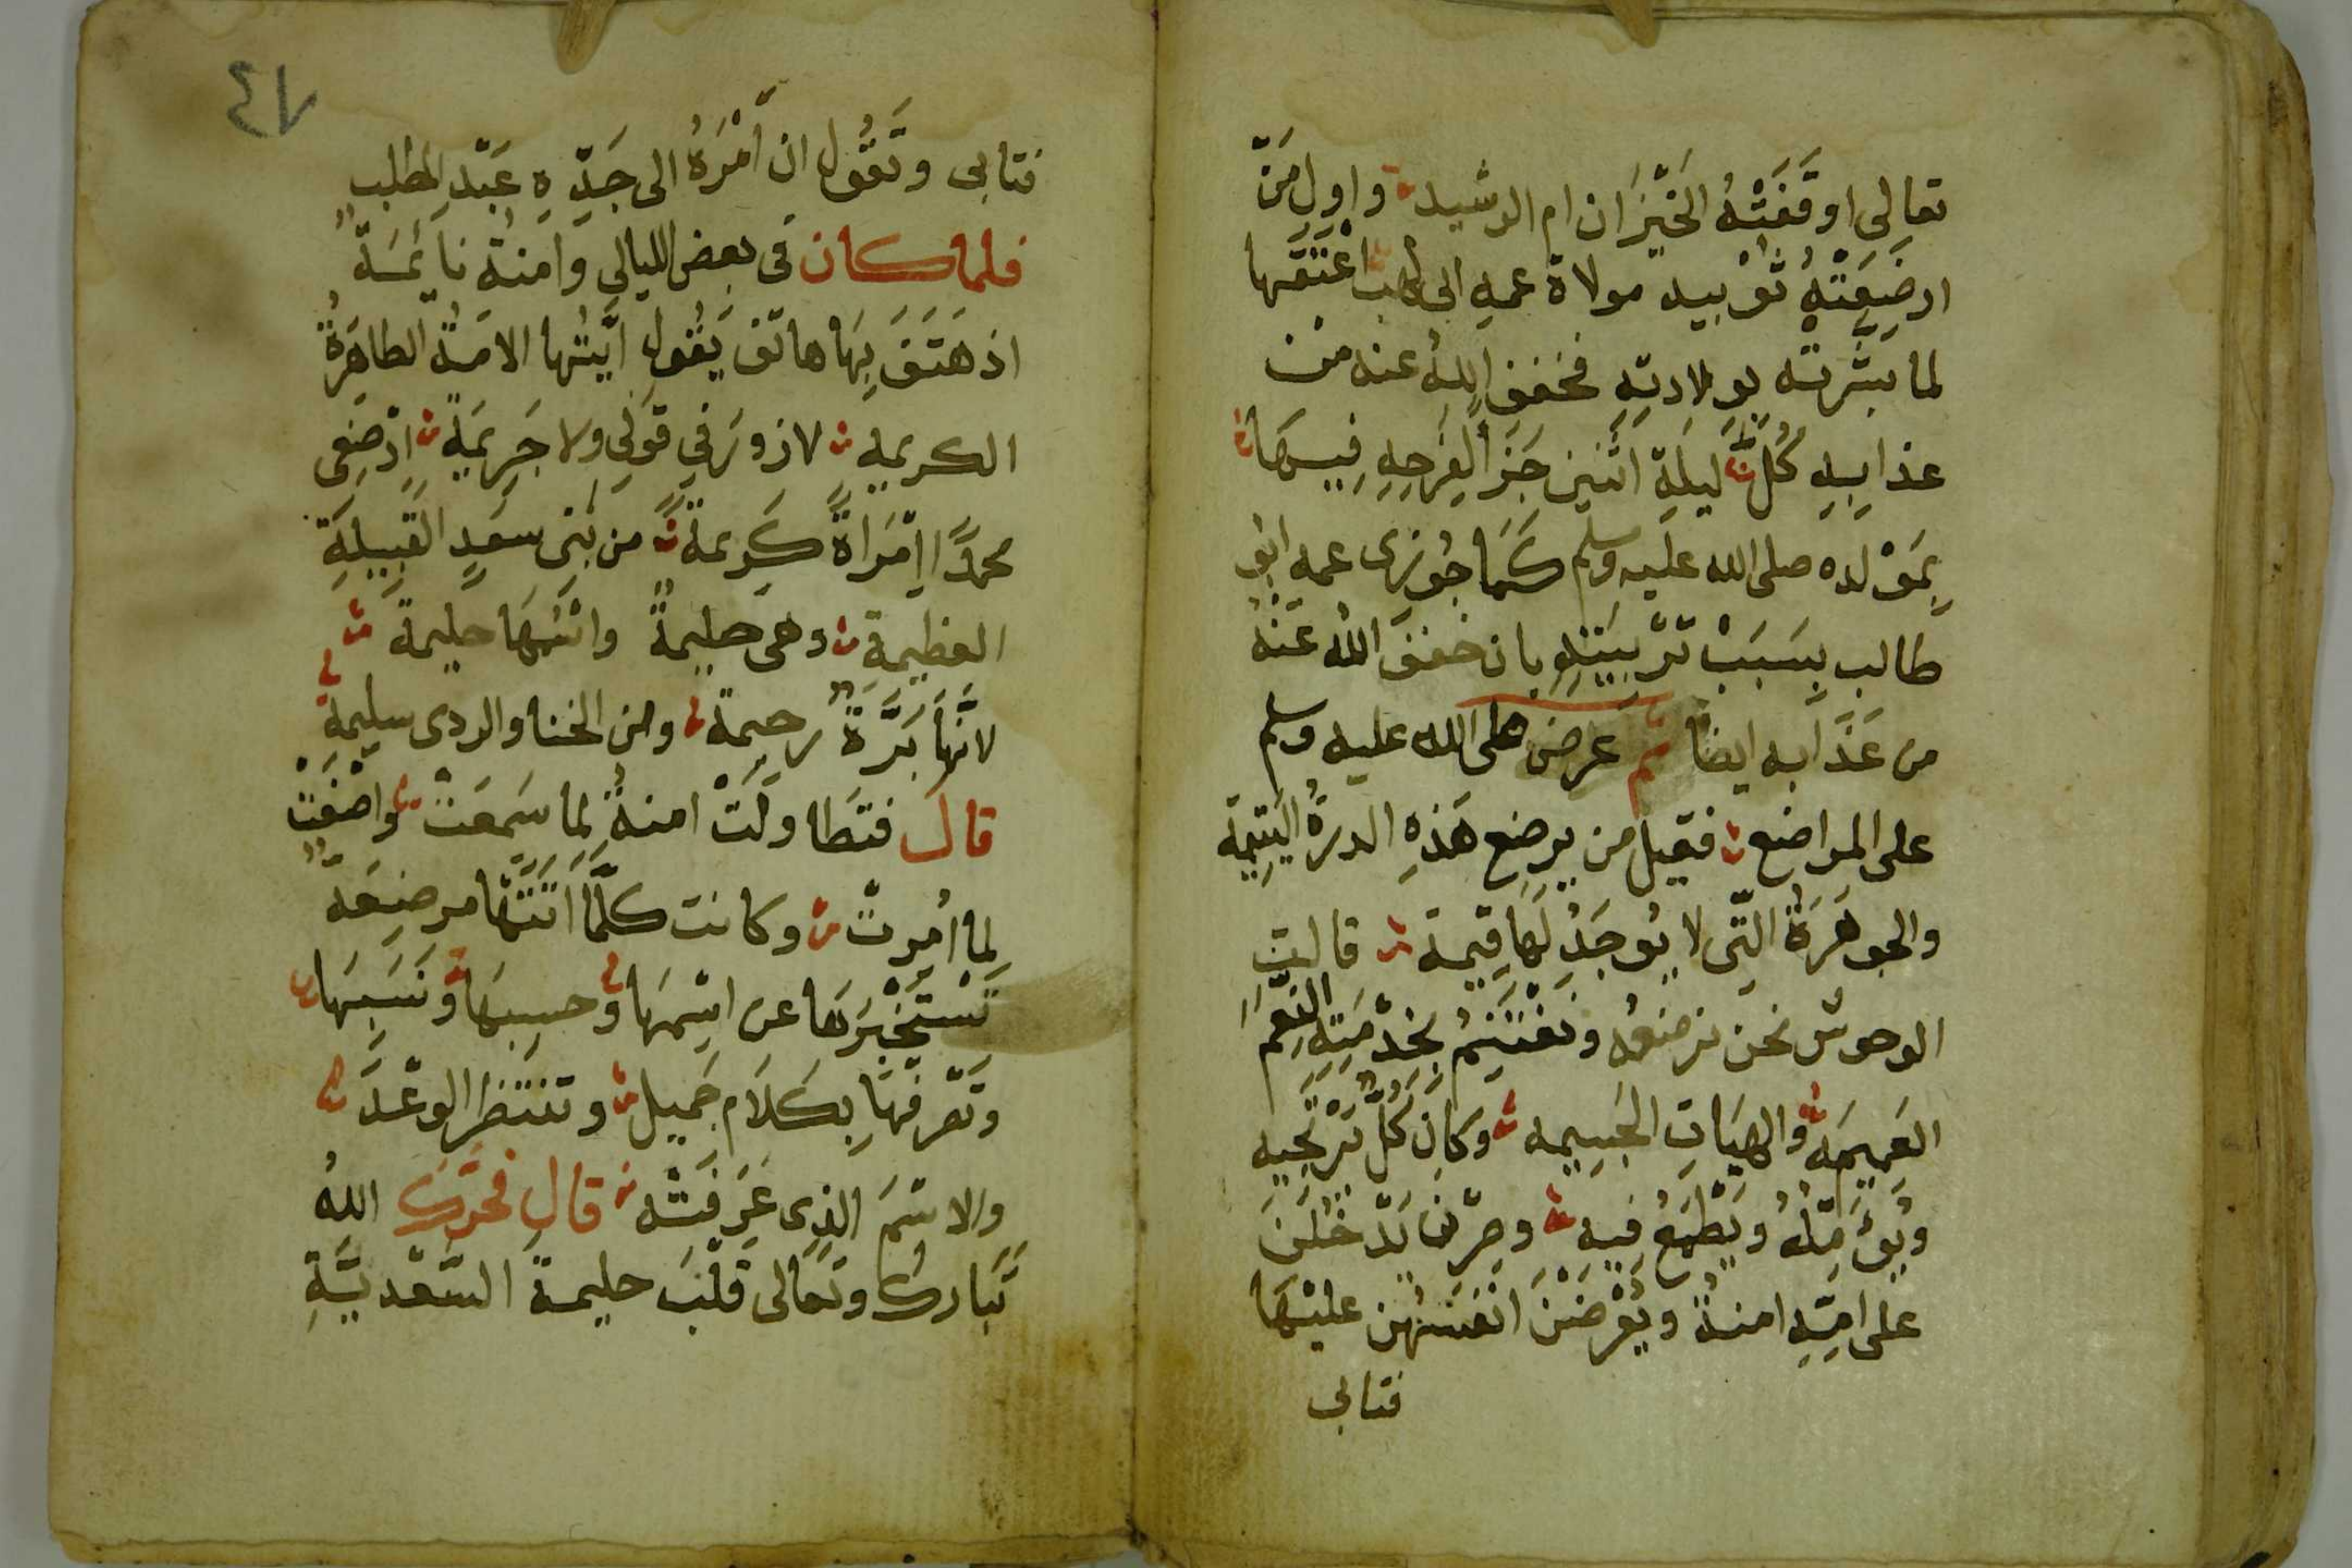 تعالى اوقفته الخيزران ام الرشيد واول من
ارضعته ثويبيه مولاة عمه ابى لهب اعتقها
لما بشرته بولادته فخفف الله عنه من
عذابه كل ليلة اثنين جزا لفرحه فيها
بمولده صلى الله عليه وسلم كما جوزى عمه ابو
طالب بسبب تربيته بان خفف الله عنه
من عذابه ايضا ثم عرض صلى الله عليه وسلم
على المراضع فقيل من يرضع هذه الدرة اليتيمة
والجوهرة التى لا يوجد لها قيمة قالت
الوحوش نحن نرضعه ونغتنم بخدمته النعم
العميمه والهبات الجسيمه وكان كل ترتجيه
ويؤمله ويطمع فيه وصرن يدخلن
على امه امنة ويعرضن انفسهن عليها
فتابى
٤٧
فتابى وتقول ان امره الى جده عبد المطلب
فلما كان فى بعض الليالى وامنة نايمسة
اذ هتف بها هاتف يقول ايتها الامة الطاهرة
الكريمه لا زور في قولى ولا جريمة ارضعى
محمدا امراة كريمة من بنى سعد القبيلة
العظيمة وهى حليمة واسمها حليمة
لانها برة رحيمة ومن الخنا والردى سليمة
قال فتطاولت امنة لما سمعت واصغت
لما امرت وكانت كلما اتتها مرضعة
تستخبرها عن اسمها وحسبها ونسبها
وتعرفها بكلام جميل وتنتظر الوعد
والاسم الذى عرفته قال فحرك الله
تبارك وتعالى قلب حليمة السعدية